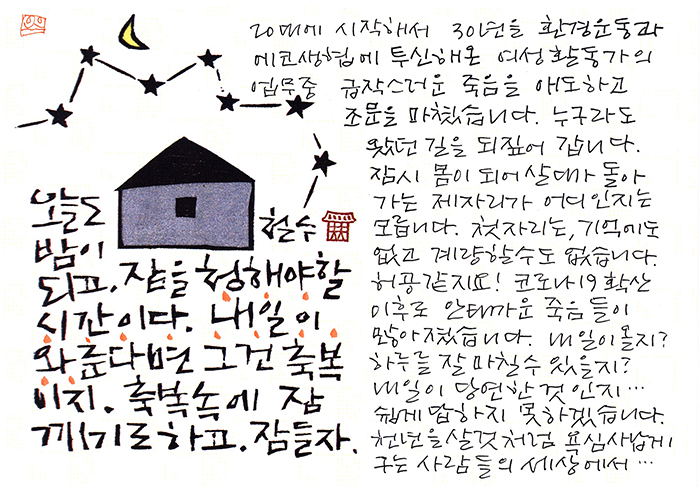 20대에 시작해서 30년을 환경운동과
에코생협에 투신해온 여성활동가의
업무중 급작스러운 죽음을 애도하고
조문을 마쳤습니다. 누구라도
왔던 길을 되짚어 갑니다.
잠시 몸이 되어 살다가 돌아
가는 제자리가 어디인지는
모릅니다. 첫자리는, 기억에도
없고 계량할수도 없습니다.
허공같지요! 코로나19 확산
이후로 안타까운 죽음들이
많아졌습니다. 내일이올지?
하루를 잘 마칠수 있을지?
내일이 당연한 것인지…
쉽게 답하지 못하겠습니다.
천년을살것처럼 욕심사납게
구는 사람들의 세상에서…
오늘도
밤이
되고. 잠을 청해야할
시간이다. 내일이
와준다면 그건 축복
이지. 축복속에 잠
깨기로하고. 잠들자.
철수